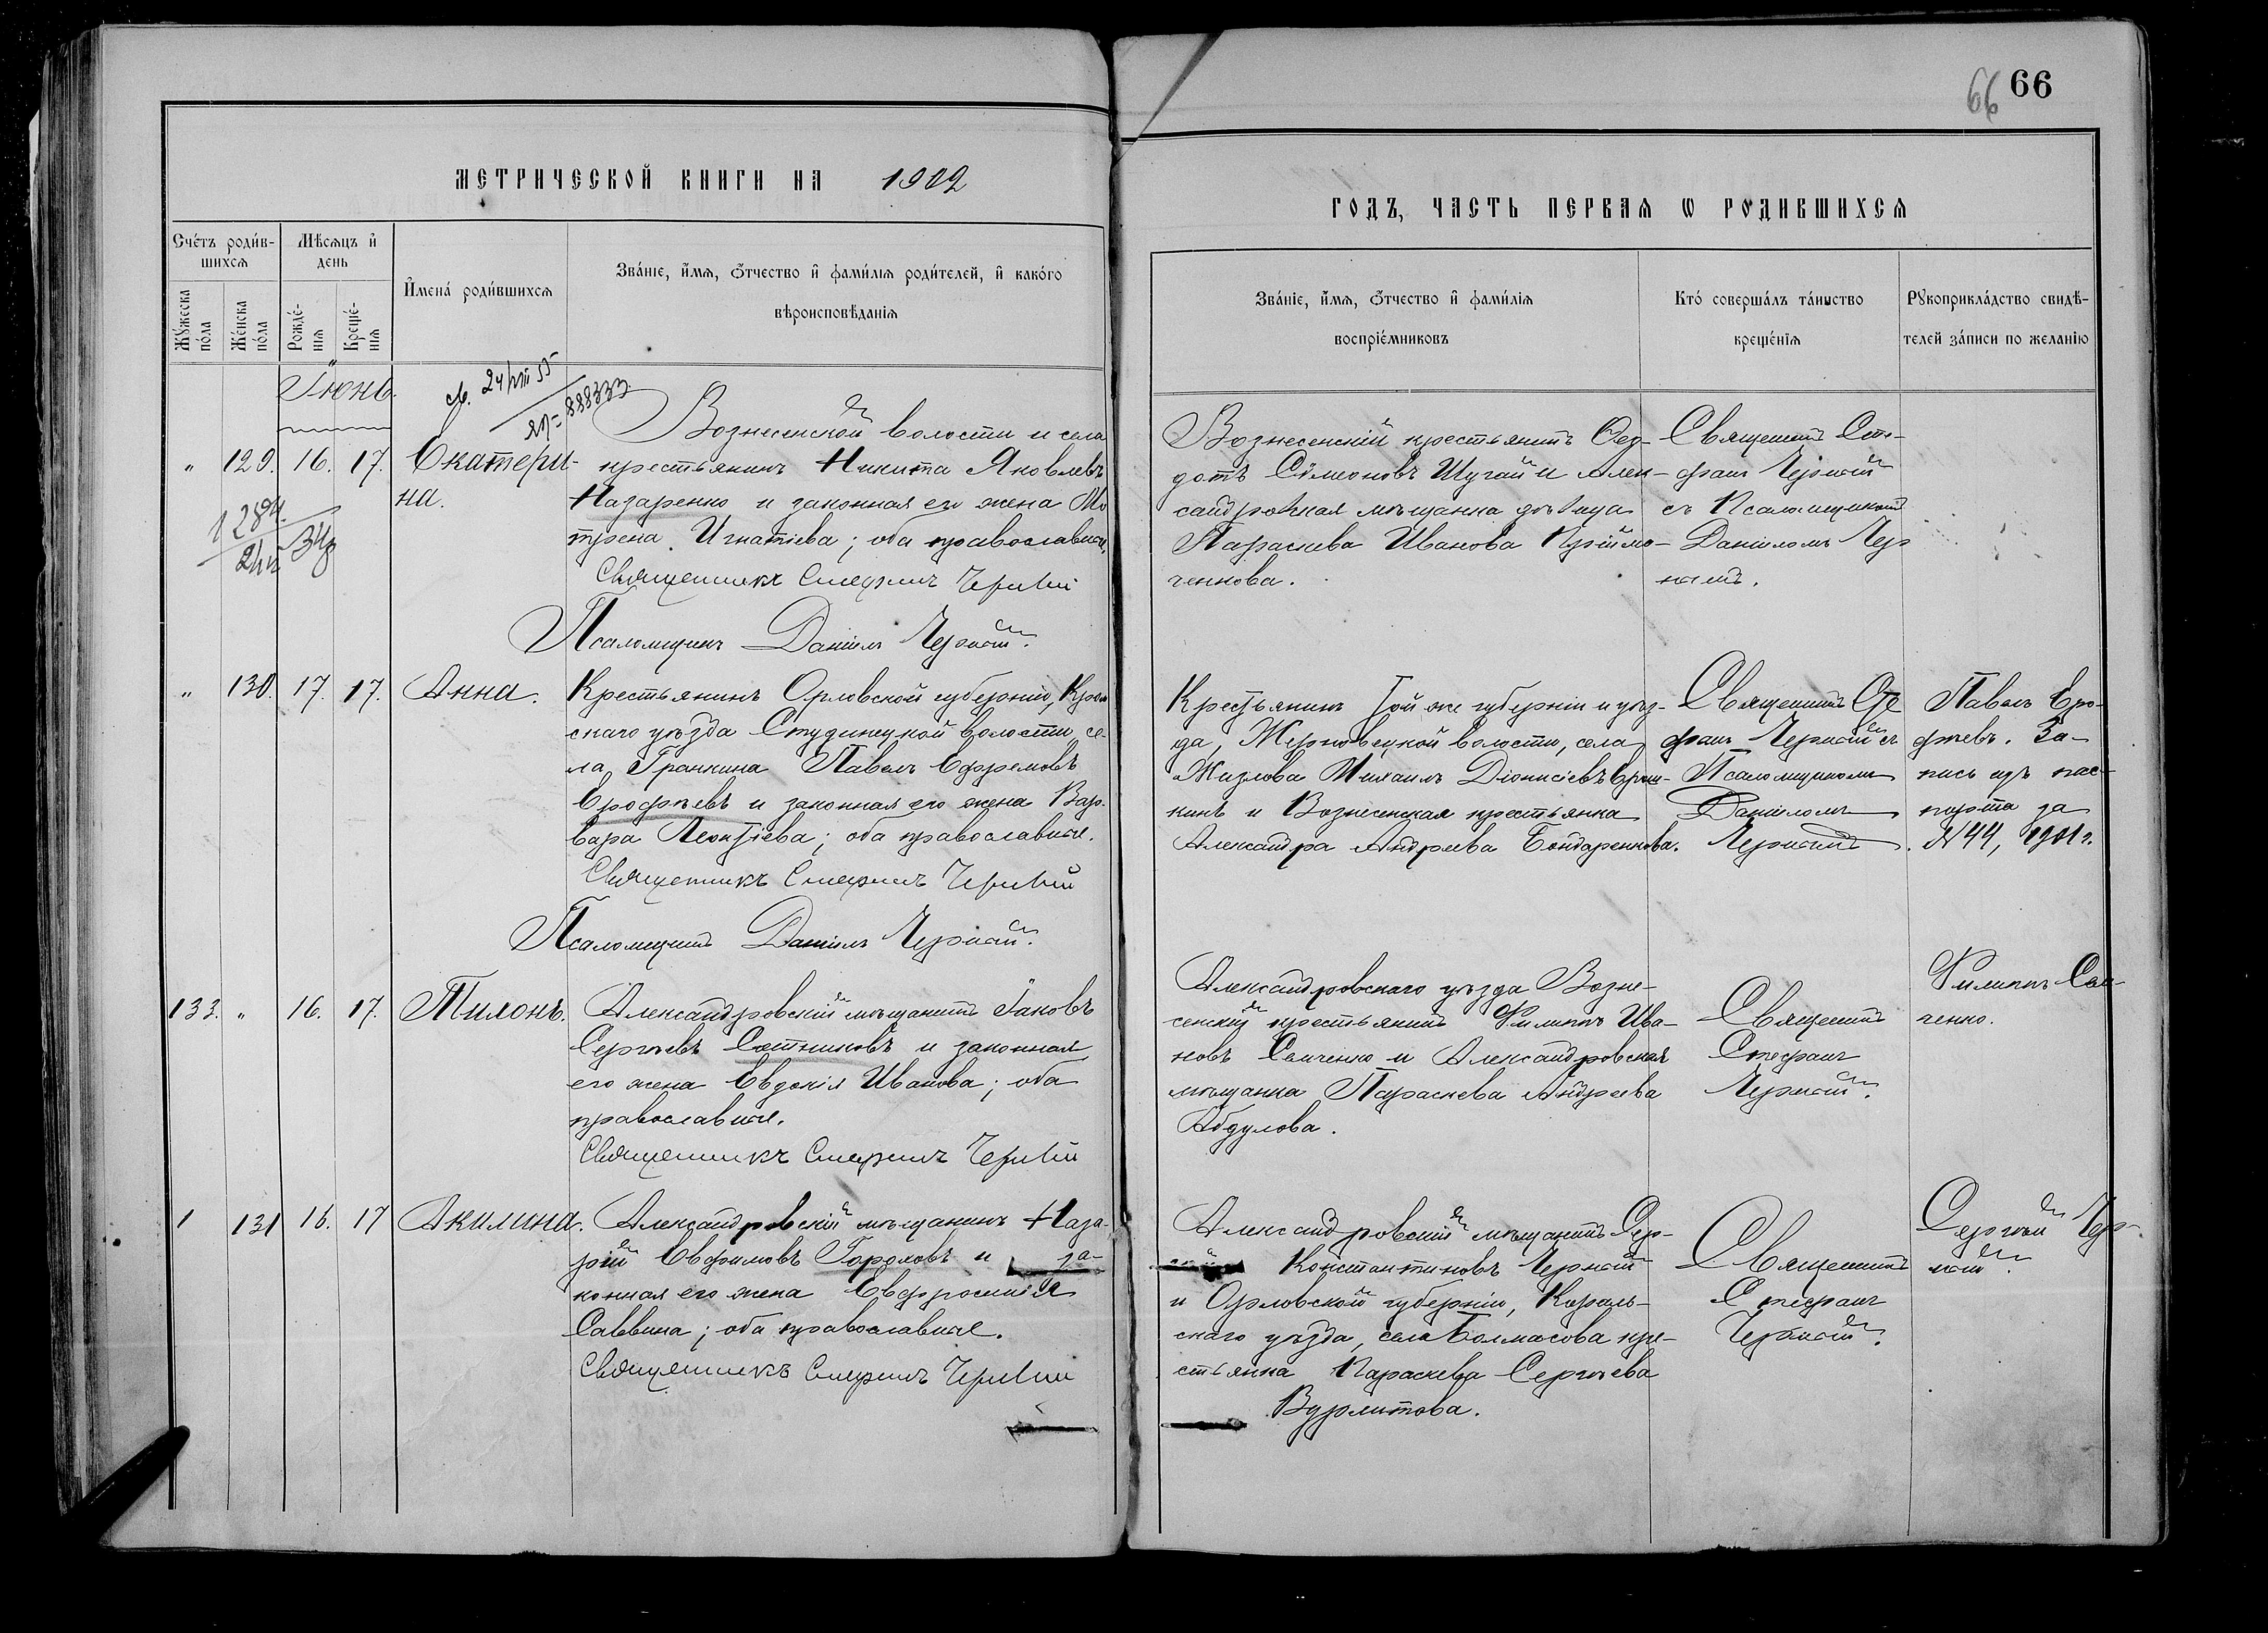 66 66
МЕТРИЧЕСКОЙ КНИГИ НА 1902
ГОДЪ, ЧАСТЬ ПЕРВАЯ Ѡ РОДИВШИХСЯ
Счетъ родив-
шихся
Мѣсяцъ и
день
Мужеска
пола
Женска
пола
Рожде-
нія
Креще-
нія
Имена родившихся
Званіе, имя, отчество и фамилія родителей, и какого
вѣроисповѣданія
Званіе, имя, отчество и фамилія
воспріемниковъ
Кто совершалъ таинство
крещенія
Рукоприкладство свидѣ-
телей записи по желанію
Іюнь.
" 129. 16. 17. Екатери-
на.
Вознесенской волости и села
крестьянинъ Никита Яковлевъ
Назаренко и законная его жена Мо
трона Игнатіева; оба православные.
Священникъ Стефанъ Черный
Псаломщикъ Даніилъ Черный.
Вознесенскій крестьянинъ Фео-
дотъ Сѵмеоновъ Шугай и Алек-
сандровская мѣщанка дѣвица
Параскева Иванова
ченкова.
Священникъ Сте-
фанъ Черный
съ Псаломщикомъ
Даніиломъ Чер
нымъ.
" 130. 17. 17. Анна.
Крестьянинъ Орловской губерніи, Кром
скаго уѣзда Студинецкой волости, се-
ла Гранкина Павелъ Ефремовъ
Ерофѣевъ и законная его жена Вар-
вара Леонтіева; оба православные.
Священникъ Стефанъ Черный
Псаломщикъ Даніилъ Черный.
Крестьянинъ той же губерніи и уѣз-
да, Жерновецкой волости, села
Жизлова Михаилъ Діонисіевъ
кинъ и Вознесенская крестьянка
Александра Андреева Бондаренкова.
Священникъ Сте
фанъ Черный съ
Псаломщикомъ
Даніиломъ
Чернымъ.
Павелъ Еро-
фѣевъ. За-
пись изъ пас-
порта за
№ 44, 1901 г.
133. " 16. 17. Тихонъ.
Александровскій мѣщанинъ Іаковъ
Сергѣевъ Сотниковъ и законная
его жена Евдокія Иванова; оба
православные.
Священникъ Стефанъ Черный
Александровскаго уѣзда Возне-
сенскій крестьянинъ Филиппъ Ива-
новъ Савченко и Александровская
мѣщанка Параскева Андреева
Абдулова.
Священникъ
Стефанъ
Черный.
Филиппъ Сав-
ченко.
1 131 16. 17 Акилина.
Александровскій мѣщанинъ Наза-
рій Евфимовъ Гороховъ и за-
конная его жена Евфросинія
Саввина; оба православные.
Священникъ Стефанъ Черный
Александровскій мѣщанинъ Сер-
гѣй Константиновъ Черный
и Орловской губерніи,
скаго уѣзда, села Толмасова кре-
стьянка Параскева Сергѣева
Вурлитова.
Священникъ
Стефанъ
Черный.
Сергѣй Чер-
ный.